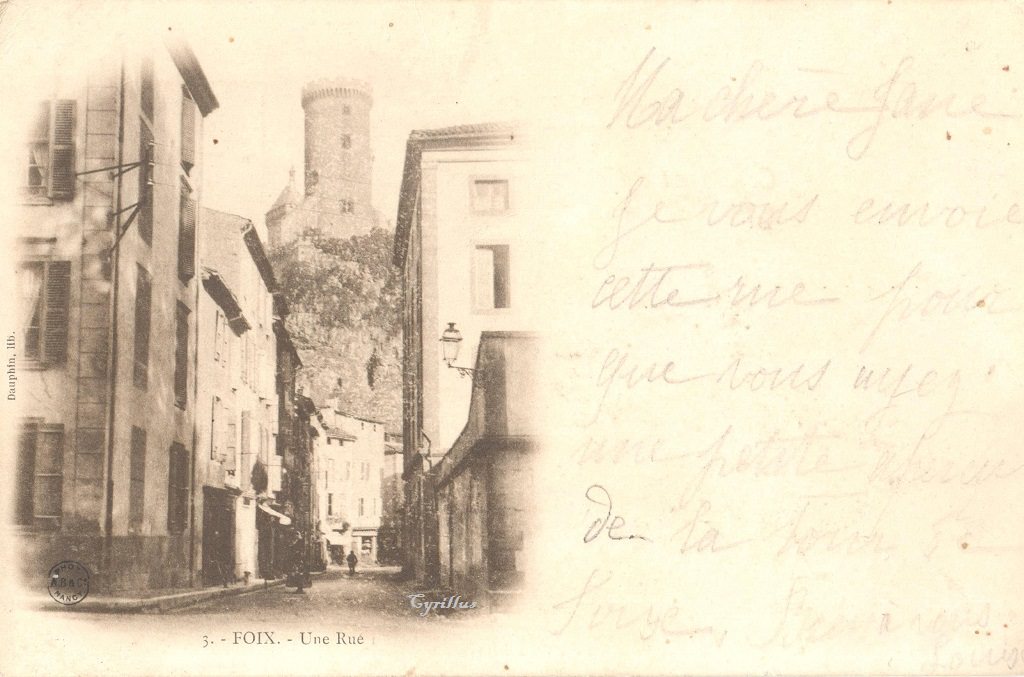 Ma chère Jane
je vous envoie
cette vue pour
que vous ayez
une petite
de la tour de
Foix,
Louise
Dauphin, lib.
PHOT
A.B.&C.
NANCY
Cyrillus
3. - FOIX. - Une Rue